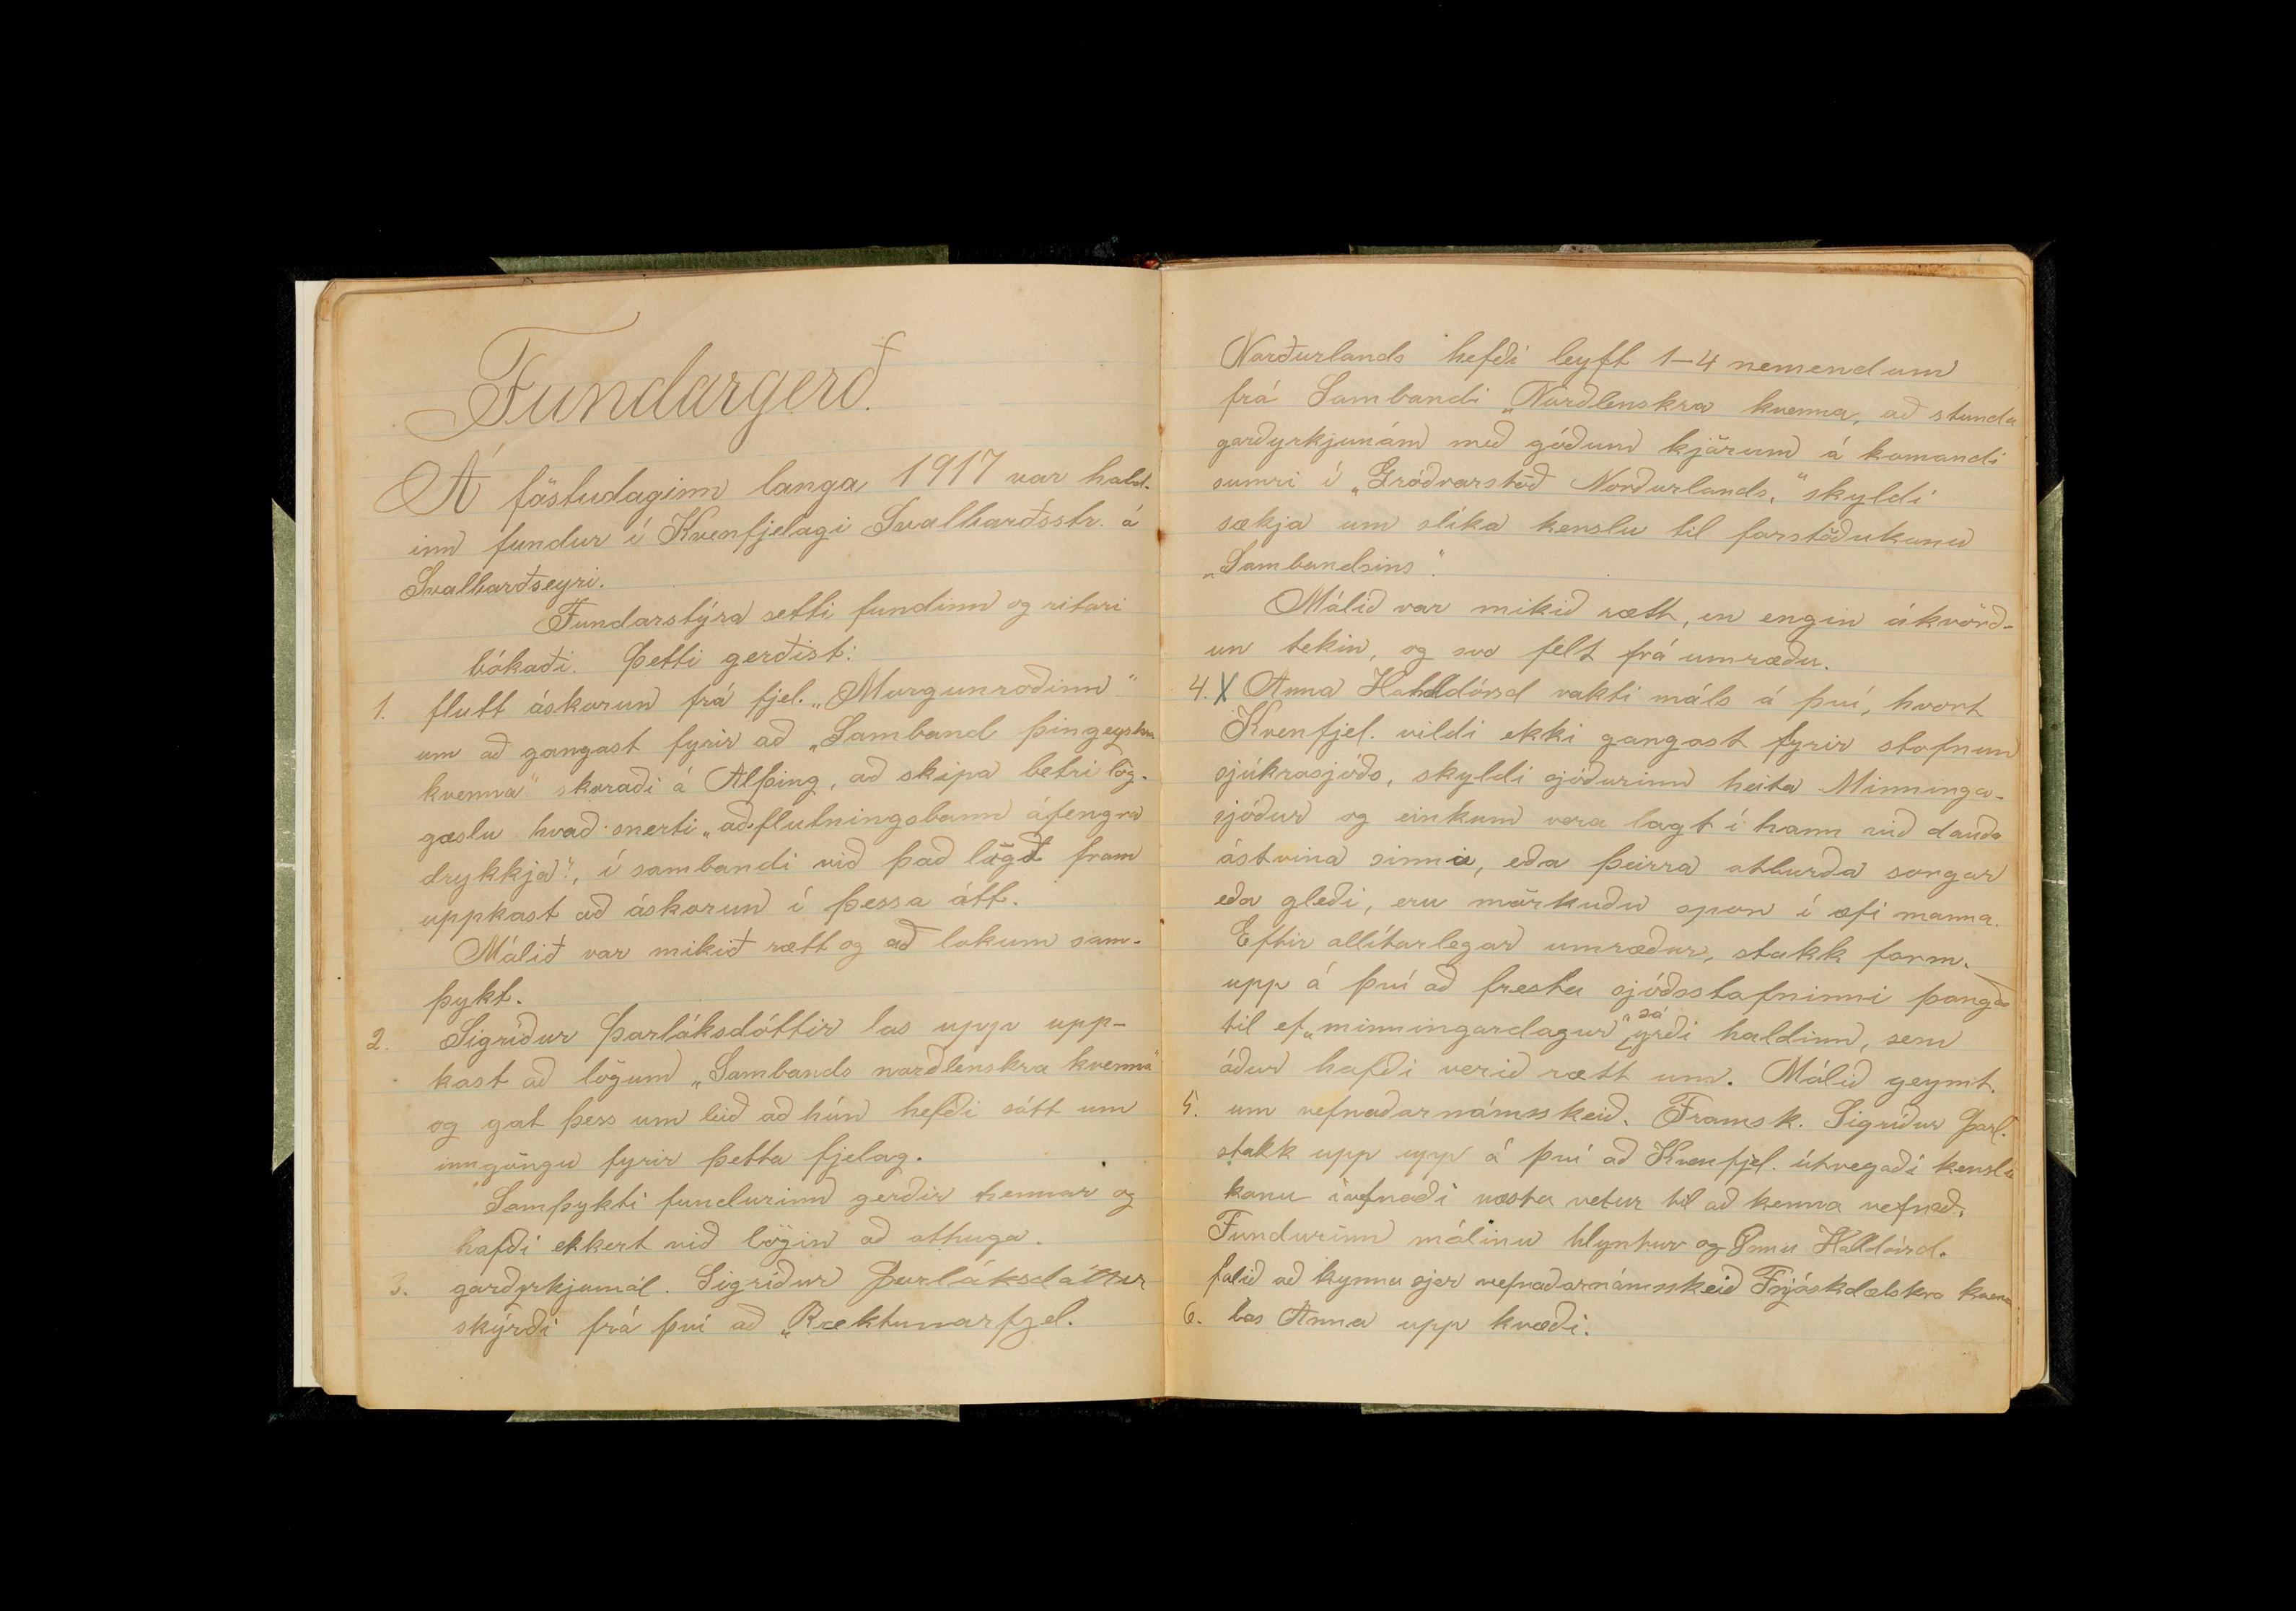 Fundargerð.
Á föstudaginn langa 1917 var hald-
inn fundur í Kvenfjelagi Svalbarðsstr. á
Svalbarðseyri.
Fundarstýra setti fundinn og ritari
bókaði. Þetti gerðist:
1. flutt áskorun frá fjel. „Morgunroðinn"
um að gangast fyrir að „Samband þingeyskra
kvenna" skoraði á Alþing, að skipa betri lög-
gæslu hvað snerti „aðflutningsbann áfengra
drykkja", í sambandi við það lögð fram
uppkast að áskorun í þessa átt.
Málið var mikið rætt og að lokum sam-
þykt.
2. Sigríður Þorláksdóttir las upp upp-
kast að lögum „Sambands norðlenskra kvenna"
og gat þess um leið að hún hefði sótt um
inngöngu fyrir þetta fjelag.
Samþykti fundurinn gerðir hennar og
hafði ekkert við lögin að athuga.
3. garðyrkjumál. Sigríður Þorláksdóttir
skýrði frá því að „Ræktunarfjel.
Norðurlands hefði leyft 1-4 nemendum
frá Sambandi „Norðlenskra kvenna, að stunda
garðyrkjunám með góðum kjörum á komandi
sumri í „Gróðrarstöð Norðurlands," skyldi
sækja um slíka kenslu til forstöðukonu
„Sambandsins".
Málið var mikið rætt, en engin ákvörð-
un tekin, og svo felt frá umræðu.
4. X Anna Halldórsd vakti máls á því, hvort
Kvenfjel. vildi ekki gangast fyrir stofnun
sjúkrasjóðs, skyldi sjóðurinn heita Minninga-
sjóður og einkum vera lagt í hann við dauða
ástvina sinna, eða þeirra atburða sorgar
eða gleði, eru mörkuðu spor í æfi manna.
Eftir allítarlegar umræður, stakk form.
upp á því að fresta sjóðsstofninni þangað
til ef „minningardagur" sá yrði haldinn, sem
áður hafði verið rætt um. Málið geymt.
5. um vefnaðarnámsskeið. Framsk. Sigríður Þorl.
stakk upp upp á því að Kvenfjel. útvegaði kenslu
konu í vefnaði næsta vetur til að kenna vefnað.
Fundurinn málinu hlyntur og Önnu Halldórsd.
falið að kynna sjer vefnaðarnámsskeið Fnjóskdælskra kvenna
6. las Anna upp kvæði.